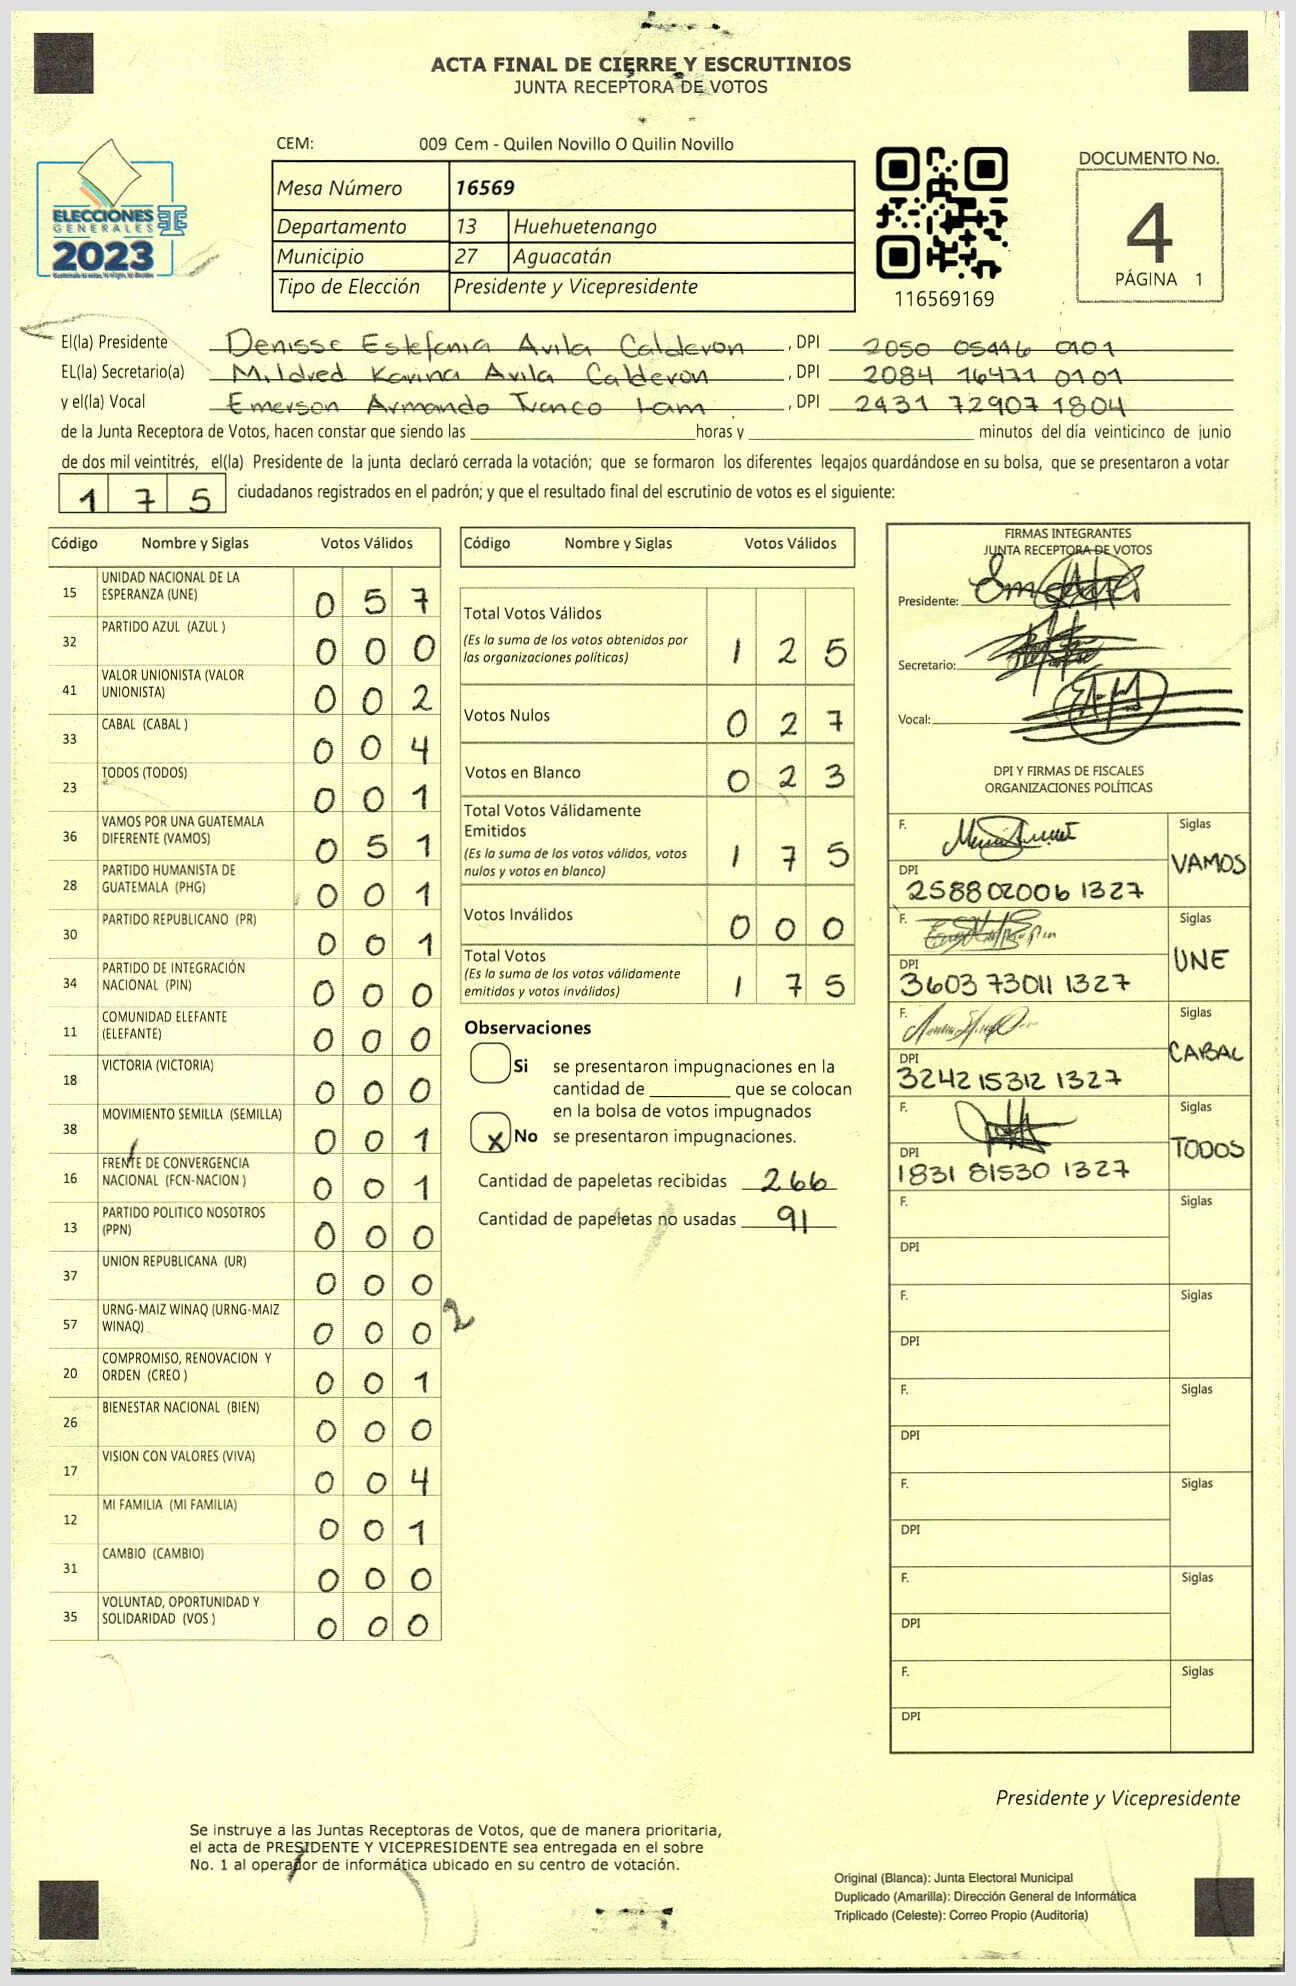 ACTA FINAL DE CIERRE Y ESCRUTINIOS
JUNTA RECEPTORA DE VOTOS
CEM: 009 Cem - Quilen Novillo O Quilin Novillo
ELECCIONES
GENERALES
2023
Mesa Número 16569
Departamento 13 Huehuetenango
Municipio 27 Aguacatán
Tipo de Elección Presidente y Vicepresidente
116569169
DOCUMENTO No.
4
PÁGINA 1
El(la) Presidente Denisse Estefania Avila Calderon , DPI 2050 05446 0101
EL(la) Secretario(a) Mildred Karina Avila Calderon , DPI 2084 16471 0101
y el(la) Vocal Emerson Armando Tronco Iam , DPI 2431 72907 1804
de la Junta Receptora de Votos, hacen constar que siendo las horas y minutos del día veinticinco de junio
de dos mil veintitrés, el(la) Presidente de la junta declaró cerrada la votación; que se formaron los diferentes legajos guardándose en su bolsa, que se presentaron a votar
175 ciudadanos registrados en el padrón; y que el resultado final del escrutinio de votos es el siguiente:
Código Nombre y Siglas Votos Válidos
15 UNIDAD NACIONAL DE LA ESPERANZA (UNE) 0 5 7
32 PARTIDO AZUL (AZUL ) 0 0 0
41 VALOR UNIONISTA (VALOR UNIONISTA) 0 0 2
33 CABAL (CABAL ) 0 0 4
23 TODOS (TODOS) 0 0 1
36 VAMOS POR UNA GUATEMALA DIFERENTE (VAMOS) 0 5 1
28 PARTIDO HUMANISTA DE GUATEMALA (PHG) 0 0 1
30 PARTIDO REPUBLICANO (PR) 0 0 1
34 PARTIDO DE INTEGRACIÓN NACIONAL (PIN) 0 0 0
11 COMUNIDAD ELEFANTE (ELEFANTE) 0 0 0
18 VICTORIA (VICTORIA) 0 0 0
38 MOVIMIENTO SEMILLA (SEMILLA) 0 0 1
16 FRENTE DE CONVERGENCIA NACIONAL (FCN-NACION ) 0 0 1
13 PARTIDO POLITICO NOSOTROS (PPN) 0 0 0
37 UNION REPUBLICANA (UR) 0 0 0
57 URNG-MAIZ WINAQ (URNG-MAIZ WINAQ) 0 0 0 2
20 COMPROMISO, RENOVACION Y ORDEN (CREO ) 0 0 1
26 BIENESTAR NACIONAL (BIEN) 0 0 0
17 VISION CON VALORES (VIVA) 0 0 4
12 MI FAMILIA (MI FAMILIA) 0 0 1
31 CAMBIO (CAMBIO) 0 0 0
35 VOLUNTAD, OPORTUNIDAD Y SOLIDARIDAD (VOS ) 0 0 0
Código Nombre y Siglas Votos Válidos
Total Votos Válidos 1 2 5
(Es la suma de los votos obtenidos por
las organizaciones políticas)
Votos Nulos 0 2 7
Votos en Blanco 0 2 3
Total Votos Válidamente
Emitidos 1 7 5
(Es la suma de los votos válidos, votos
nulos y votos en blanco)
Votos Inválidos 0 0 0
Total Votos 1 7 5
(Es la suma de los votos válidamente
emitidos y votos inválidos)
Observaciones
Si se presentaron impugnaciones en la
cantidad de que se colocan
en la bolsa de votos impugnados
x No se presentaron impugnaciones.
Cantidad de papeletas recibidas 266
Cantidad de papeletas no usadas 91
FIRMAS INTEGRANTES
JUNTA RECEPTORA DE VOTOS
Presidente:
Secretario:
Vocal:
DPI Y FIRMAS DE FISCALES
ORGANIZACIONES POLÍTICAS
F. Siglas
VAMOS
DPI
258802006 1327
F. Siglas
UNE
DPI
3603 73011 1327
F. Siglas
CABAL
DPI
3242 15312 1327
F. Siglas
TODOS
DPI
1831 81530 1327
F. Siglas
DPI
F. Siglas
DPI
F. Siglas
DPI
F. Siglas
DPI
F. Siglas
DPI
F. Siglas
DPI
Presidente y Vicepresidente
Se instruye a las Juntas Receptoras de Votos, que de manera prioritaria,
el acta de PRESIDENTE Y VICEPRESIDENTE sea entregada en el sobre
No. 1 al operador de informática ubicado en su centro de votación.
Original (Blanca): Junta Electoral Municipal
Duplicado (Amarilla): Dirección General de Informática
Triplicado (Celeste): Correo Propio (Auditoria)